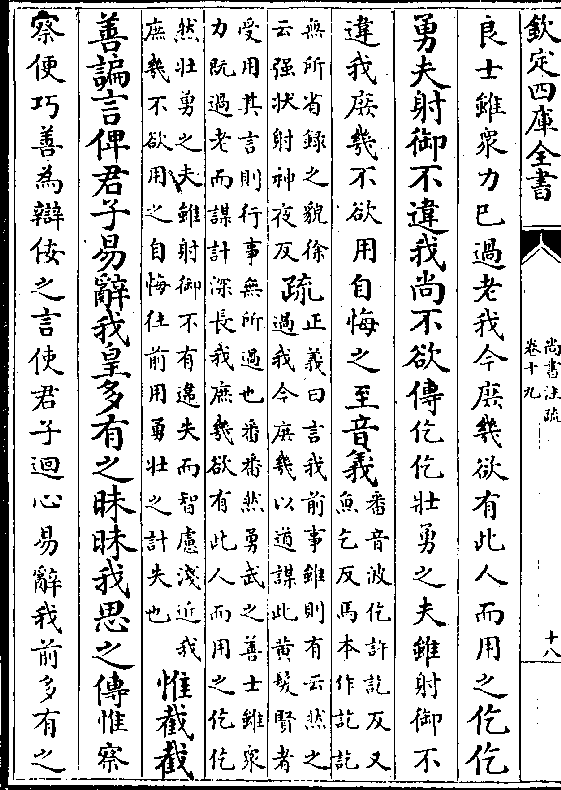 欽定四庫全書
尚書注疏
卷十九
十八
良士雖衆力已過老我今庶幾欲有此人而用之仡仡
勇夫射御不違我尚不欲傳仡仡壯勇之夫雖射御不
違我庶幾不欲用自悔之至音義
番音波仡許訖反又
魚乞反馬本作訖訖
無所省録之貌徐
云强狀射神夜反
疏
正義曰言我前事雖則有云然之
過我今庶幾以道謀此黄髮賢者
受用其言則行事無所過也番番然勇武之善士雖衆
力既過老而謀計深長我庶幾欲有此人而用之仡仡
然壯勇之夫雖射御不有違失而智慮淺近我
庶幾不欲用之自悔往前用勇壯之計失也
惟截截
善諞言俾君子易辭我皇多有之昧昧我思之傳惟察
察便巧善為辯佞之言使君子迴心易辭我前多有之